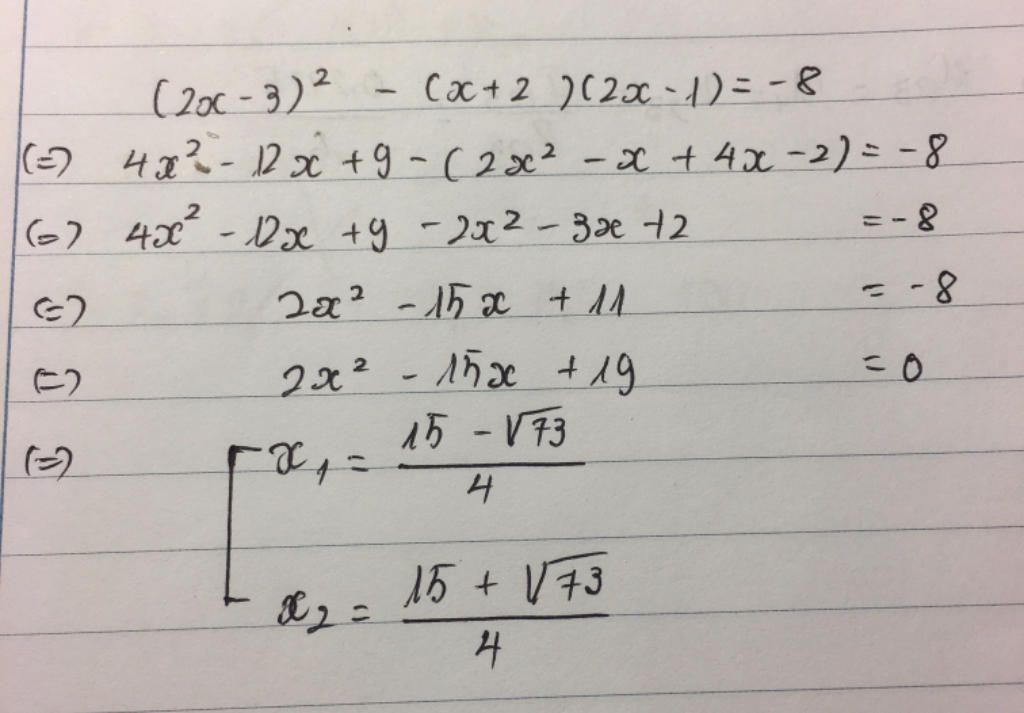 (2x - 3)² - (x + 2)(2x - 1) = -8
(=) 4x² - 12x + 9 - (2x² - x + 4x - 2) = -8
(=) 4x² - 12x + 9 - 2x² - 3x + 2 = -8
(=) 2x² - 15x + 11 = -8
(=) 2x² - 15x + 19 = 0
(=) [ x₁ = (15 - √73)/4
x₂ = (15 + √73)/4